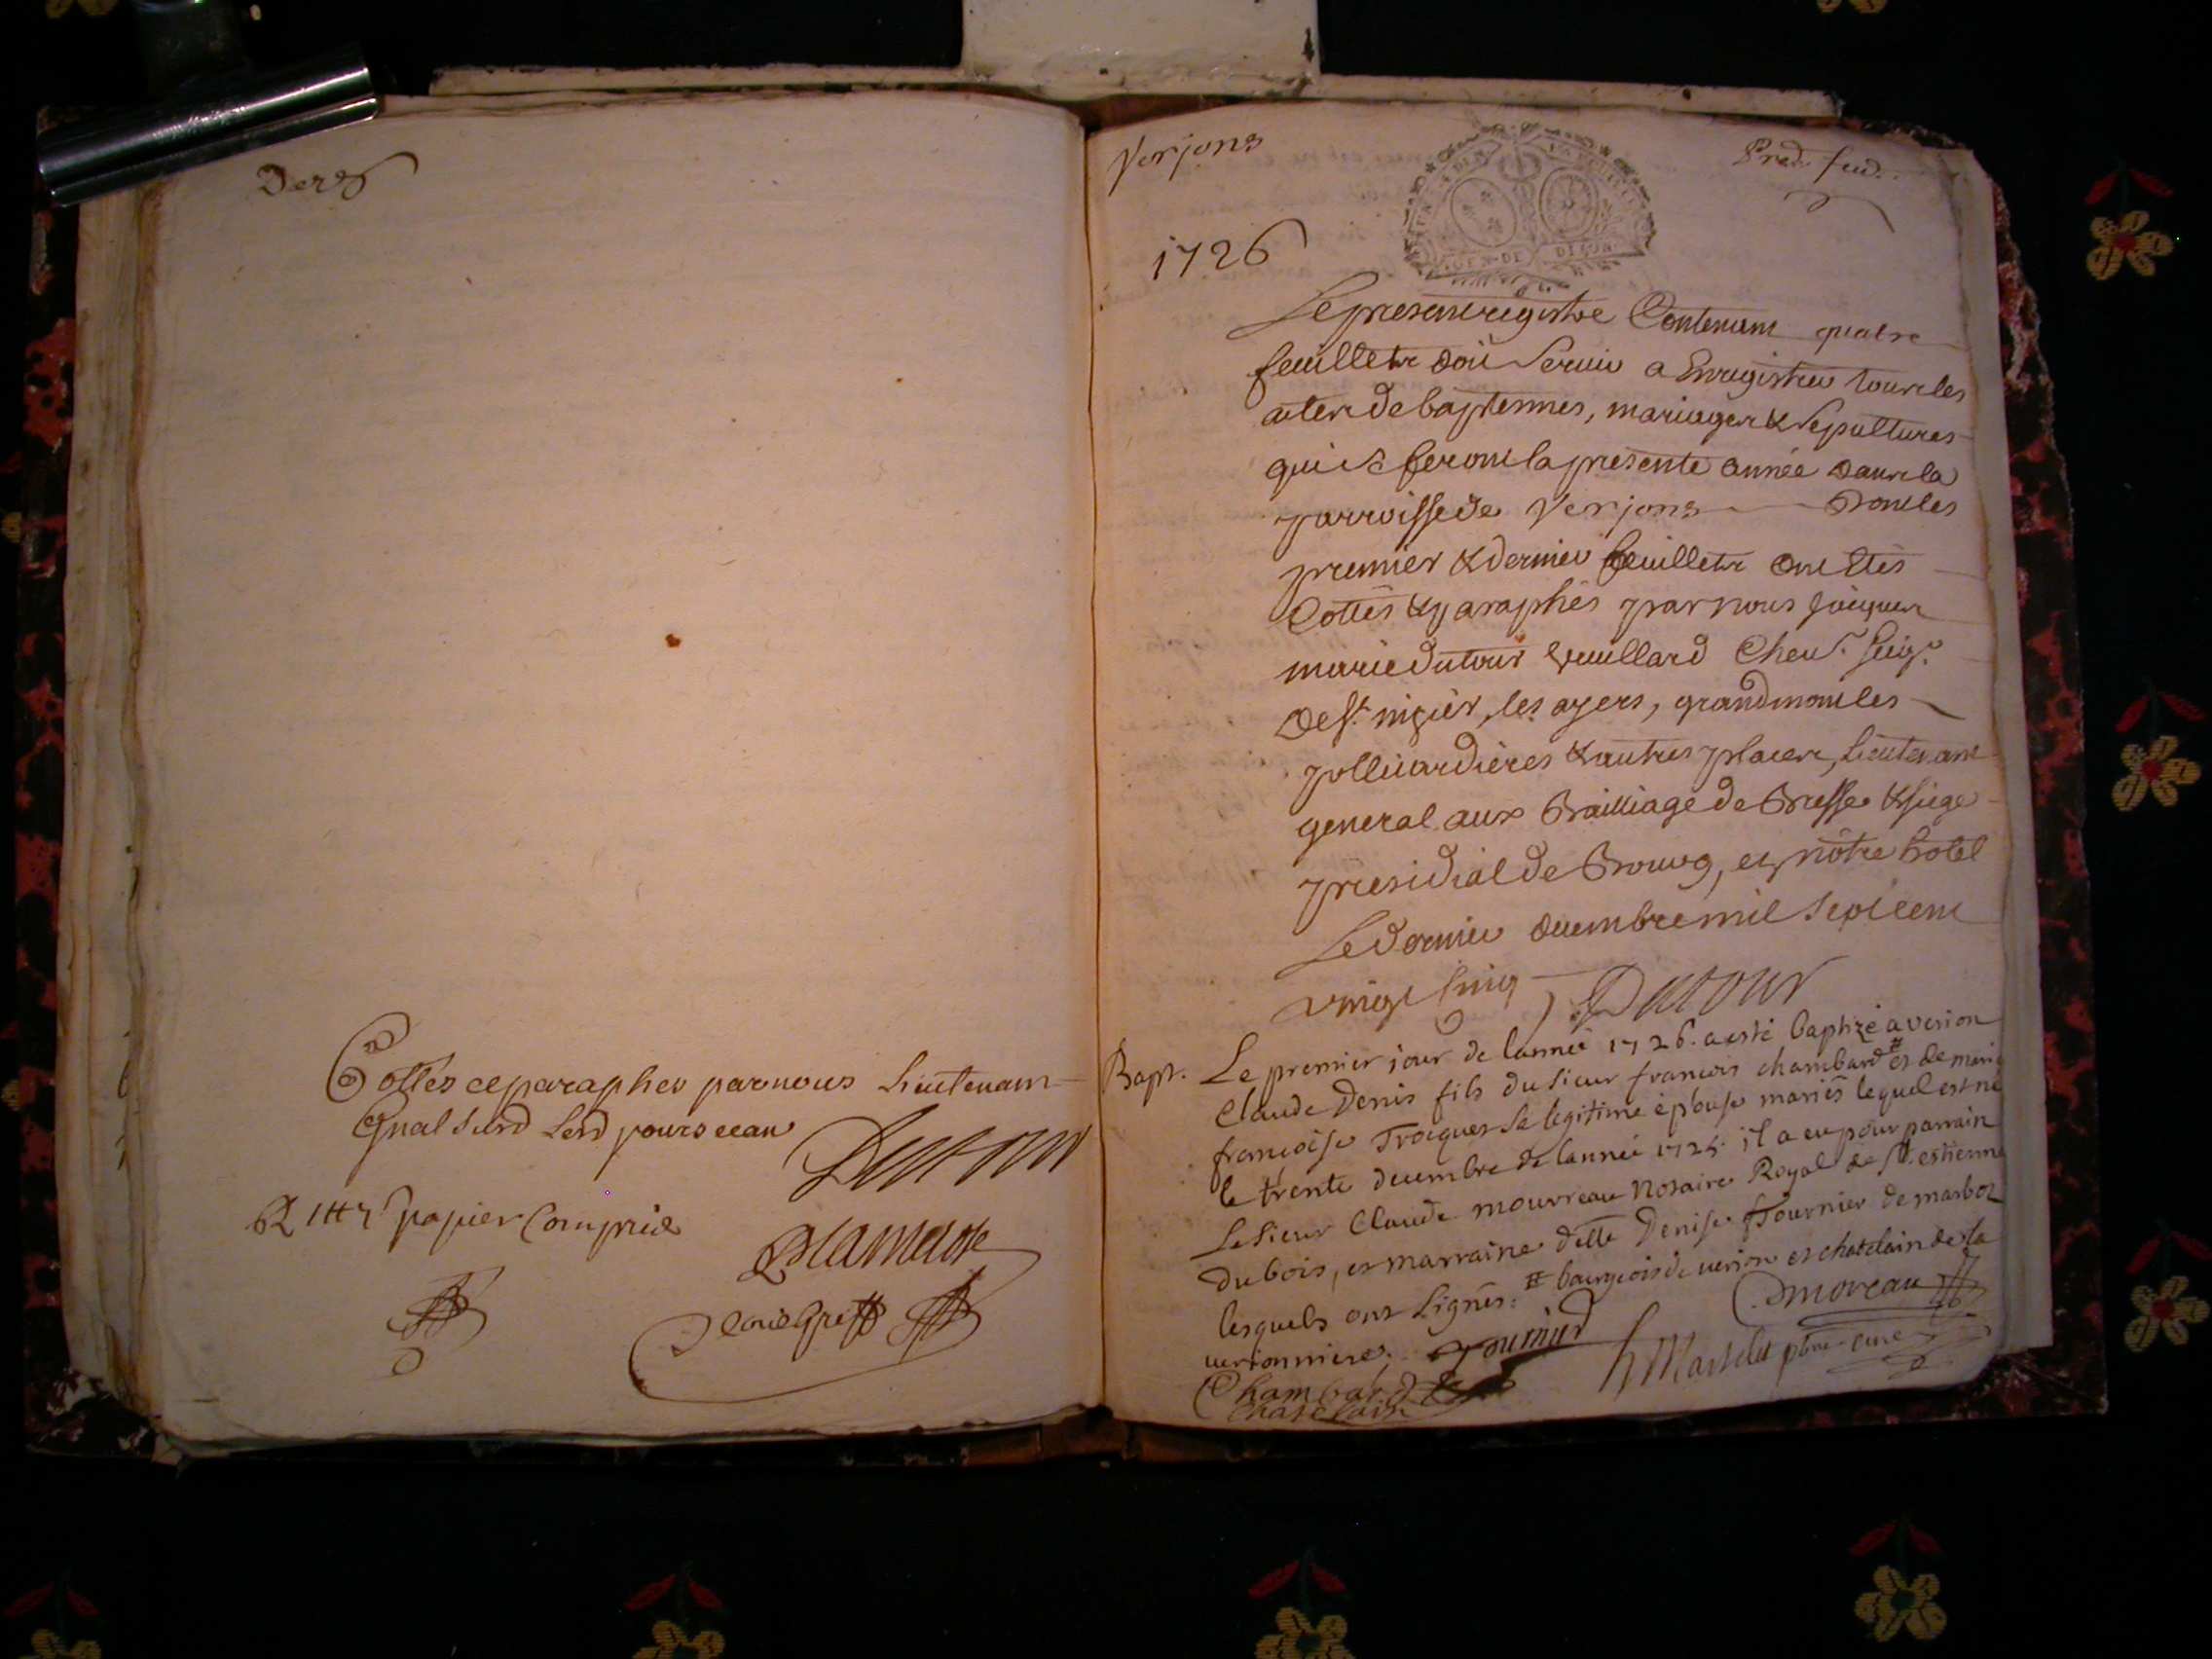 Der
Cottés et paraphés par nous Lieutenant
gnal susd led jour et an
Dutour
papier Compris
Verjons
1726
GEN DE DIJON
Le present registre Contenant quatre
feuillets doit servir a Enregistrer tous les
actes de baptesmes, mariages & sepultures
qui se feront la presente année dans la
parroisse de Verjons dont les
premier & dernier feuillets ont étés
Cottés & paraphés par nous jacques
marie dutour vuillard Chevr. seigr.
de st. nigier, les ayers, grandmont les
polliardieres & autres places, Lieutenant
general aux Bailliage de Bresse & siege
presidial de Bourg, en nôtre hotel
Le dernier decembre mil sept cent
vingt cinq Dutour
Bapt. Le premier jour de lannée 1726. a esté baptizé a verion
Claude Denis fils du sieur francois chambard # et de marie
francoise Trocques sa legitime épouse mariés lequel est né
le trente decembre de lannée 1725. il a eu pour parrain
Le sieur Claude mourreau Notaire Royal de st. estienne
du bois, et marraine delle Denise ffournier de marboz
lesquels ont signés. # bourgeois de verion et chatelain de la
verionniere. fournier Cmoreau
Chambard ptre curé
Chatelain